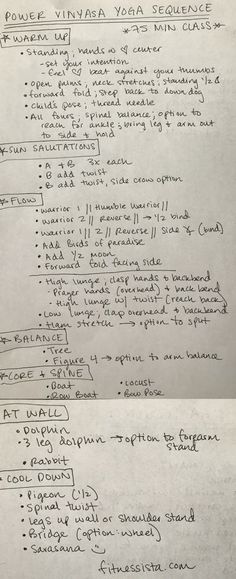 POWER VINYASA YOGA SEQUENCE
*75 MIN CLASS*
*WARM UP
• Standing, hands @ ♡ center
- set your intention
- feel ♡ beat against your thumbs
• open palms, neck stretches, standing 1/2
• forward fold, step back to down dog
• Child's pose; thread needle
• All fours, spinal balance; option to
reach for ankle; bring leg + arm out
to side + hold
*SUN SALUTATIONS
• A + B 3x each
• B add twist
• B add twist, side crow option
*FLOW
• Warrior 1 || Humble Warrior ||
• Warrior 2 || Reverse || → 1/2 bind
• Warrior 1 || 2 || Reverse || Side (bind)
• Add Birds of paradise
• Add 1/2 moon
• Forward fold facing side
• High lunge, clasp hands + backbend
- Prayer hands (overhead) + back bend
- High lunge w/ twist (reach back)
• Low lunge, clap overhead + backbend
• Ham stretch → option to split
*BALANCE
• Tree
• Figure 4 → option to arm balance
*CORE + SPINE
• Boat • Locust
• Row Boat • Bow Pose
AT WALL
• Dolphin
• 3 leg dolphin → option to forearm
stand
• Rabbit
*COOL DOWN
• Pigeon (1/2)
• Spinal twist
• legs up wall or shoulder stand
• Bridge (option: wheel)
• Savasana
fitnessista.com